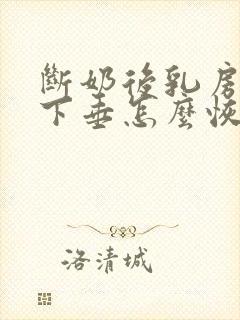 斷奶後乳房
下垂怎麼恢
洛清城